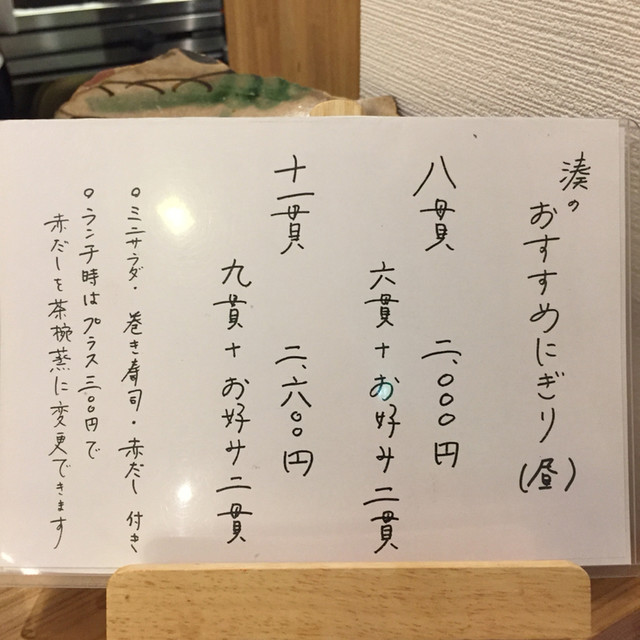 湊の
おすすめにぎり(昼)
八貫 二、〇〇〇円
六貫+お好み二貫
十一貫 二、六〇〇円
九貫+お好み二貫
○ミニサラダ・巻き寿司・赤だし付き
○ランチ時はプラス三〇〇円で
赤だしを茶椀蒸に変更できます